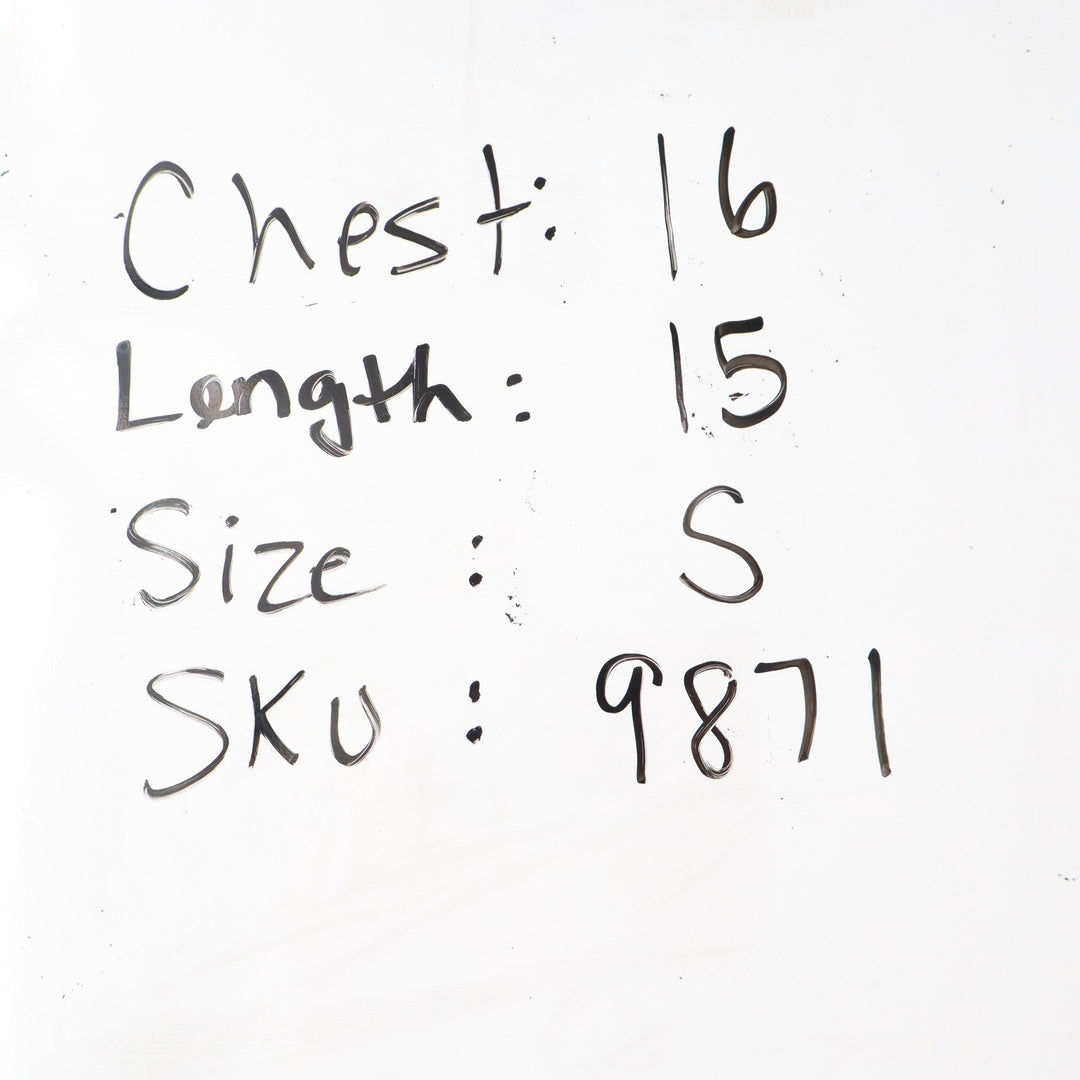 Chest: 16
Length: 15
Size : S
SKU : 9871